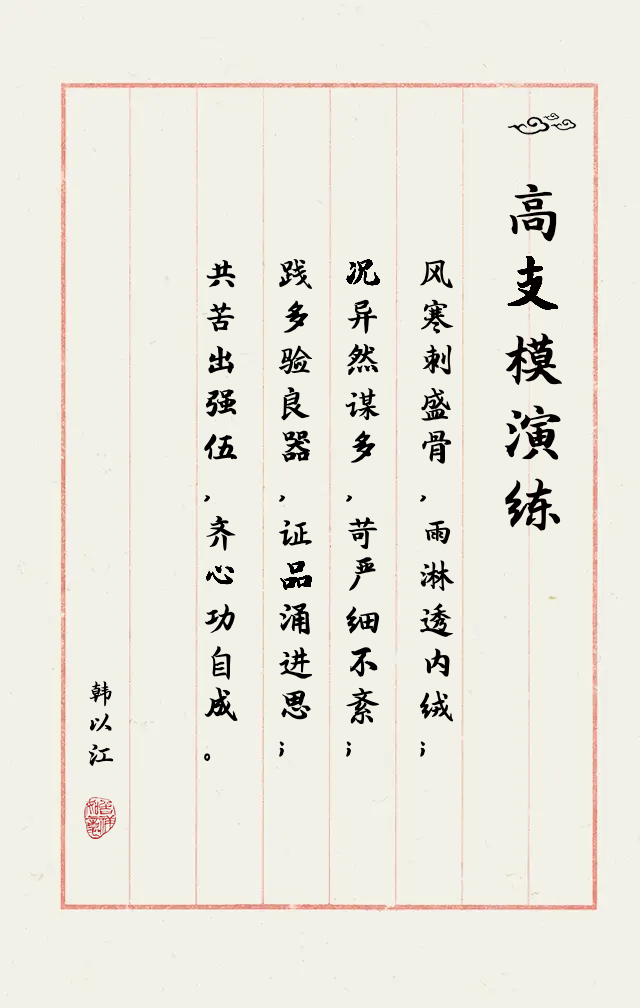 高支模演练
风寒刺盛骨，雨淋透内绒；
况异然谋多，苛严细不紊；
践多验良器，证品涌进思；
共苦出强伍，齐心功自成。
韩以江